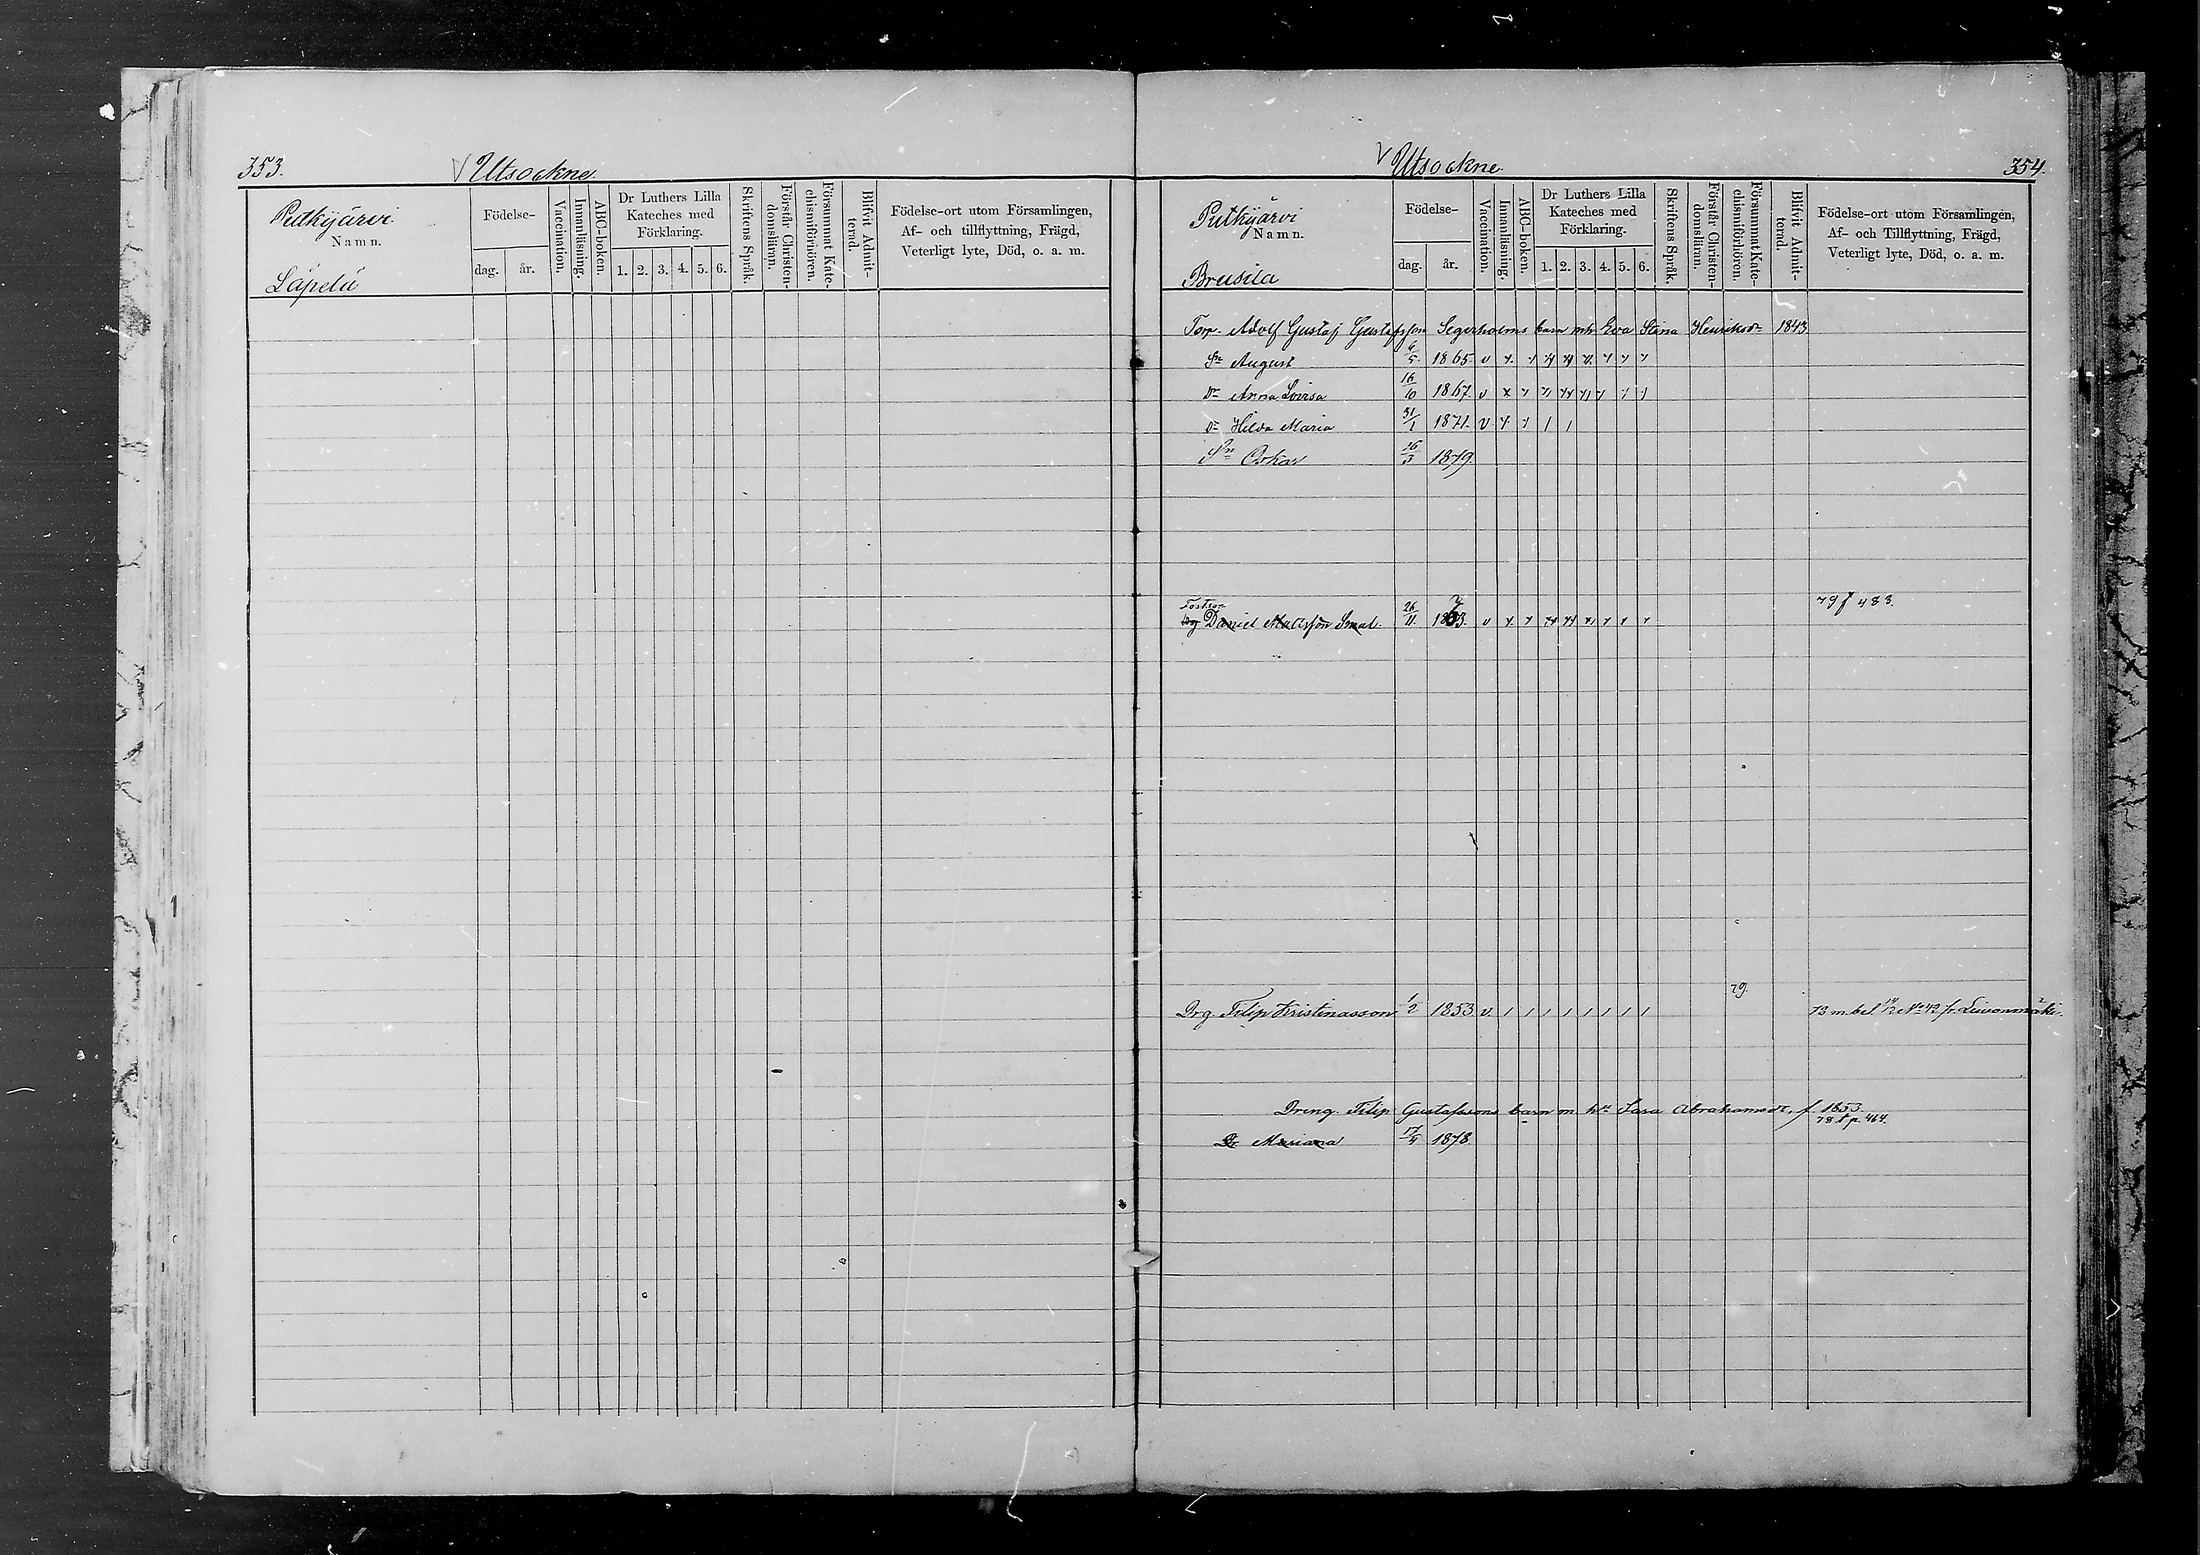 353.
Utsockne.
Putkijärvi.
Namn.
Läpelü
Födelse-
dag.
år.
Vaccination.
Innanläsning.
ABC-boken.
Dr Luthers Lilla
Kateches med
Förklaring.
1. 2. 3. 4. 5. 6.
Skriftens Språk.
Förstår Christen-
domsläran.
Försummat Kate-
chismiförhören.
Blifvit Admit-
terad.
Födelse-ort utom Församlingen,
Af- och tillflyttning, Frägd,
Veterligt lyte, Död, o. a. m.
Utsockne.
354.
Putkijärvi
Namn.
Brusila
Födelse-
dag.
år.
Vaccination.
Innanläsning.
ABC-boken.
Dr Luthers Lilla
Kateches med
Förklaring.
1. 2. 3. 4. 5. 6.
Skriftens Språk.
Förstår Christen-
domsläran.
Försummat Kate-
chismiförhören.
Blifvit Admit-
terad.
Födelse-ort utom Församlingen,
Af- och Tillflyttning, Frägd,
Veterligt lyte, Död, o. a. m.
Torp. Adolf Gustaf Gustafsson Segerholms barn m h Eva Stina Henriksdr 1843
Sn August 6/5 1865 v
Dr Anna Lovisa 16/10 1867 v
Dr Hilda Maria 31/1 1871 v
Sn Oskar 16/3 1879
Daniel Mattsson Smal. 26/11 v
79 f 483.
79.
Drg Filip Kristinasson 1/2 1853 v
73 m. bet.
Dreng. Filip Gustafssons barn m. hu Sara Abrahamsdr, f. 1853
78 t p. 464.
Dr Mariana 1878